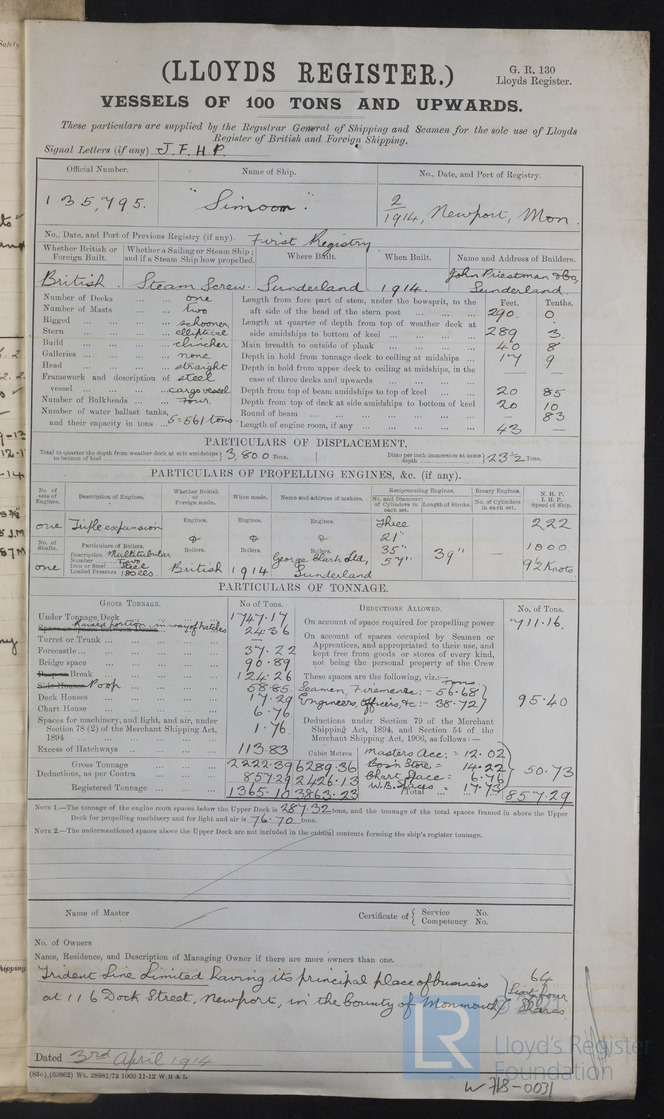 (LLOYDS REGISTER.)
G. R. 130
Lloyds Register.
VESSELS OF 100 TONS AND UPWARDS.
These particulars are supplied by the Registrar General of Shipping and Seamen for the sole use of Lloyds
Register of British and Foreign Shipping.
Signal Letters (if any) J. F. H. P.
Official Number. Name of Ship. No., Date, and Port of Registry.
135,795. "Simoom". 2/1914, Newport, Mon.
No., Date, and Port of Previous Registry (if any). First Registry
Whether British or Foreign Built. Whether a Sailing or Steam Ship; and if a Steam Ship how propelled. Where Built. When Built. Name and Address of Builders.
British. Steam Screw. Sunderland. 1914. John Priestman & Co, Sunderland
Number of Decks one
Number of Masts two
Rigged schooner
Stern elliptical
Build clincher
Galleries none
Head straight
Framework and description of vessel steel cargo vessel
Number of Bulkheads Four
Number of water ballast tanks, and their capacity in tons 5=561 tons
Feet. Tenths.
Length from fore part of stem, under the bowsprit, to the aft side of the head of the stern post 290. 0.
Length at quarter of depth from top of weather deck at side amidships to bottom of keel 289 3.
Main breadth to outside of plank 40 8
Depth in hold from tonnage deck to ceiling at midships 17 9
Depth in hold from upper deck to ceiling at midships, in the case of three decks and upwards — —
Depth from top of beam amidships to top of keel 20 85
Depth from top of deck at side amidships to bottom of keel 20 10
Round of beam — 83
Length of engine room, if any 43 —
PARTICULARS OF DISPLACEMENT.
Total to quarter the depth from weather deck at side amidships to bottom of keel 3,800 Tons.
Ditto per inch immersion at same depth 23½ Tons.
PARTICULARS OF PROPELLING ENGINES, &c. (if any).
No. of sets of Engines. Description of Engines. Whether British or Foreign made. When made. Name and address of makers. Reciprocating Engines. Rotary Engines. N. H. P. I. H. P. Speed of Ship.
No. and Diameter of Cylinders in each set. Length of Stroke. No. of Cylinders in each set.
one Triple expansion Engines. Engines. Engines. Three 222
No. of Shafts. Particulars of Boilers. & & 21" 1000
Description Multitubular Boilers. Boilers. Boilers. 35" 39" —
Number Two
Iron or Steel Steel
Loaded Pressure 180 lbs
one British 1914 George Clark Ltd, Sunderland 57" 9½ Knots
PARTICULARS OF TONNAGE.
GROSS TONNAGE. No. of Tons.
Under Tonnage Deck 1747.17
Raised portion in way of hatches 24.36
Turret or Trunk —
Forecastle 37.22
Bridge space 90.89
Break 124.26
Poop 58.85
Deck Houses 17.29
Chart House 6.76
Spaces for machinery, and light, and air, under Section 78 (2) of the Merchant Shipping Act, 1894 1.76
Excess of Hatchways 113.83
Cubic Metres
Gross Tonnage 2222.39 6289.36
Deductions, as per Contra 857.29 2426.13
Registered Tonnage 1365.10 3863.23
DEDUCTIONS ALLOWED. No. of Tons.
On account of space required for propelling power 711.16.
On account of spaces occupied by Seamen or Apprentices, and appropriated to their use, and kept free from goods or stores of every kind, not being the personal property of the Crew
These spaces are the following, viz.:— Tons
Seamen, Firemen &c :- 56.68
Engineers, Officers, &c :- 38.72 95.40
Deductions under Section 79 of the Merchant Shipping Act, 1894, and Section 54 of the Merchant Shipping Act, 1906, as follows:—
Masters Acc: = 12.02
Bos'n Store = 14.22
Chart Space = 6.76
W.B. Spaces = 17.73 50.73
Total 857.29
NOTE 1.—The tonnage of the engine room spaces below the Upper Deck is 287.32 tons, and the tonnage of the total spaces framed in above the Upper
Deck for propelling machinery and for light and air is 76.70 tons.
NOTE 2.—The undermentioned spaces above the Upper Deck are not included in the cubical contents forming the ship's register tonnage.
Name of Master
Certificate of { Service No. Competency No.
No. of Owners
Name, Residence, and Description of Managing Owner if there are more owners than one.
Trident Line Limited having its principal place of business
at 116 Dock Street, Newport, in the County of Monmouth
64
Sixty four
Shares
Dated 3rd April 1914
(83o),(69862) Wt. 28981/72 1000 11-12 W B & L
LR
Lloyd's Register
Foundation
W718-0031